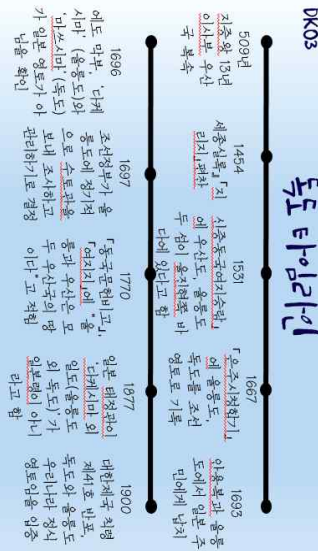 DK03
독도 타임라인
509년
지증왕 13년
이사부 우산
국 복속
1454
세종실록』『지
리지』편찬
1531
신증동국여지승람』
에 우산도, 울릉도
두 섬이 울진현쪽 바
다에 있다고 함
1667
에 울릉도,
독도를 조선
영토로 기록
1693
안용복과 울릉
도에서 일본 주
민에게 납치
1696
에도 막부, '다케
시마' (울릉도)와
'마쓰시마' (독도)
가 일본 영토가 아
님을 확인
1697
조선정부가 울
릉도에 정기적
으로 수토관을
보내 조사하고
관리하기로 결정
1770
『동국문헌비고』,
『여지지』에 "울
릉과 우산은 모
두 우산국의 땅
이다"고 적힘
1877
일본 태정관이
'다케시마 외
일도(울릉도
외 독도)' 가
일본령이 아니
라고 함
1900
대한제국 칙령
제41호 반포,
독도와 울릉도
우리나라 정식
영토임을 입증